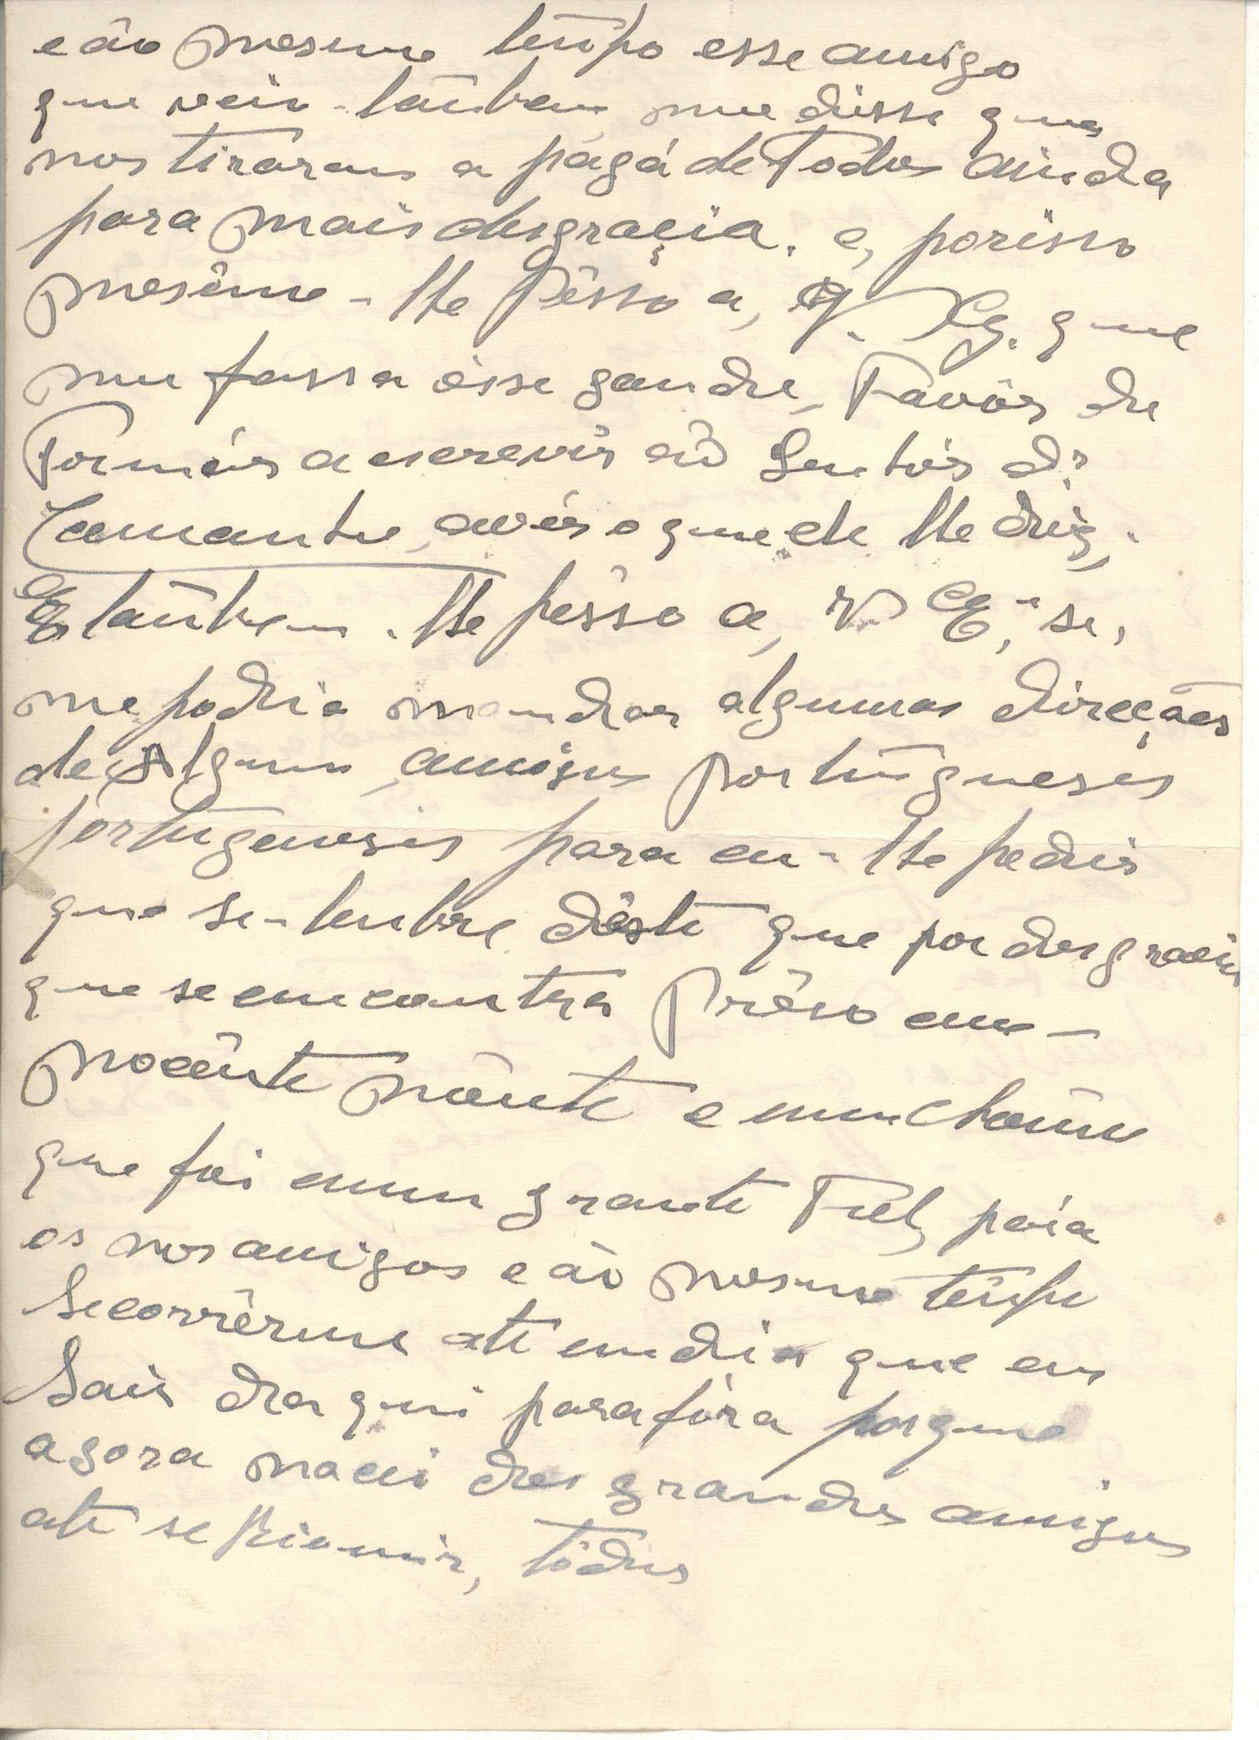 e âo mesmo tenpo esse amigo
que veio tãnbem me disse que
nos tiraram a pagá de Todos ainda
para mais desgraçia. e, porisso
mesêmo - lhe pêsso a, V. Exª. que
me fassa êsse gandre, Favôr de
Tornár a escrevir aô Senhôr dr
Camanho, avêr o que ele lhe diz.
E tãnbem. lhe pêsso a, V. Exª se,
me podria mandar algumas direçães
de Algum amigus portûguesis
portugenesis para eu - lhe pedir
que se - lenbre dêste que por desgraçia
que se emcontra Prêso em -
nocênte mênte e
que foi grante Fiel, para
os nos amigos e aô mesmo tênpu
Secorrêrme ate um dia que eu
Sair da qui para fóra porque
agora os grandes amigus
ate se tôdus